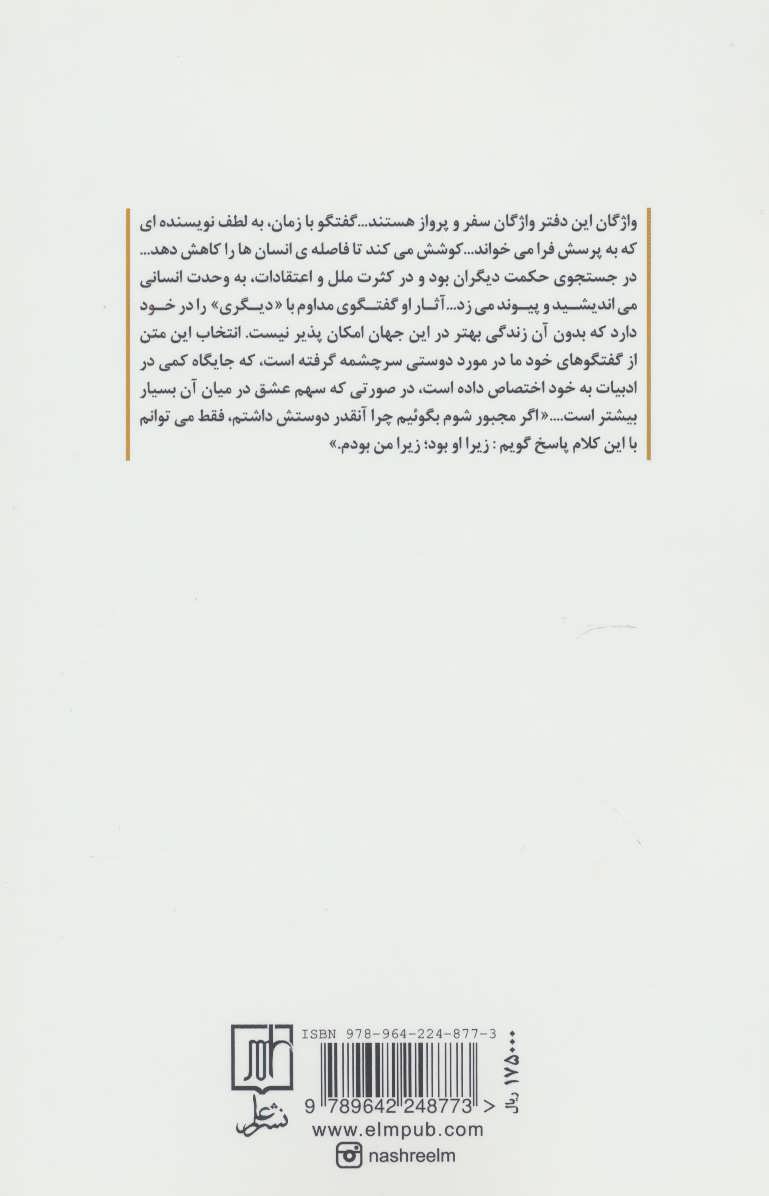 واژگان این دفتر واژگان سفر و پرواز هستند...گفتگو با زمان، به لطف نویسنده ای
که به پرسش فرا می خواند...کوشش می کند تا فاصله ی انسان ها را کاهش دهد...
در جستجوی حکمت دیگران بود و در کثرت ملل و اعتقادات، به وحدت انسانی
می اندیشید و پیوند می زد...آثار او گفتگوی مداوم با «دیگری» را در خود
دارد که بدون آن زندگی بهتر در این جهان امکان پذیر نیست. انتخاب این متن
از گفتگوهای خود ما در مورد دوستی سرچشمه گرفته است، که جایگاه کمی در
ادبیات به خود اختصاص داده است، در صورتی که سهم عشق در میان آن بسیار
بیشتر است....«اگر مجبور شوم بگوئیم چرا آنقدر دوستش داشتم، فقط می توانم
با این کلام پاسخ گویم : زیرا او بود؛ زیرا من بودم.»
ISBN 978-964-224-877-3
9 789642 248773 >
۱۷۵۰۰۰ ریال
نشر علم
www.elmpub.com
nashreelm